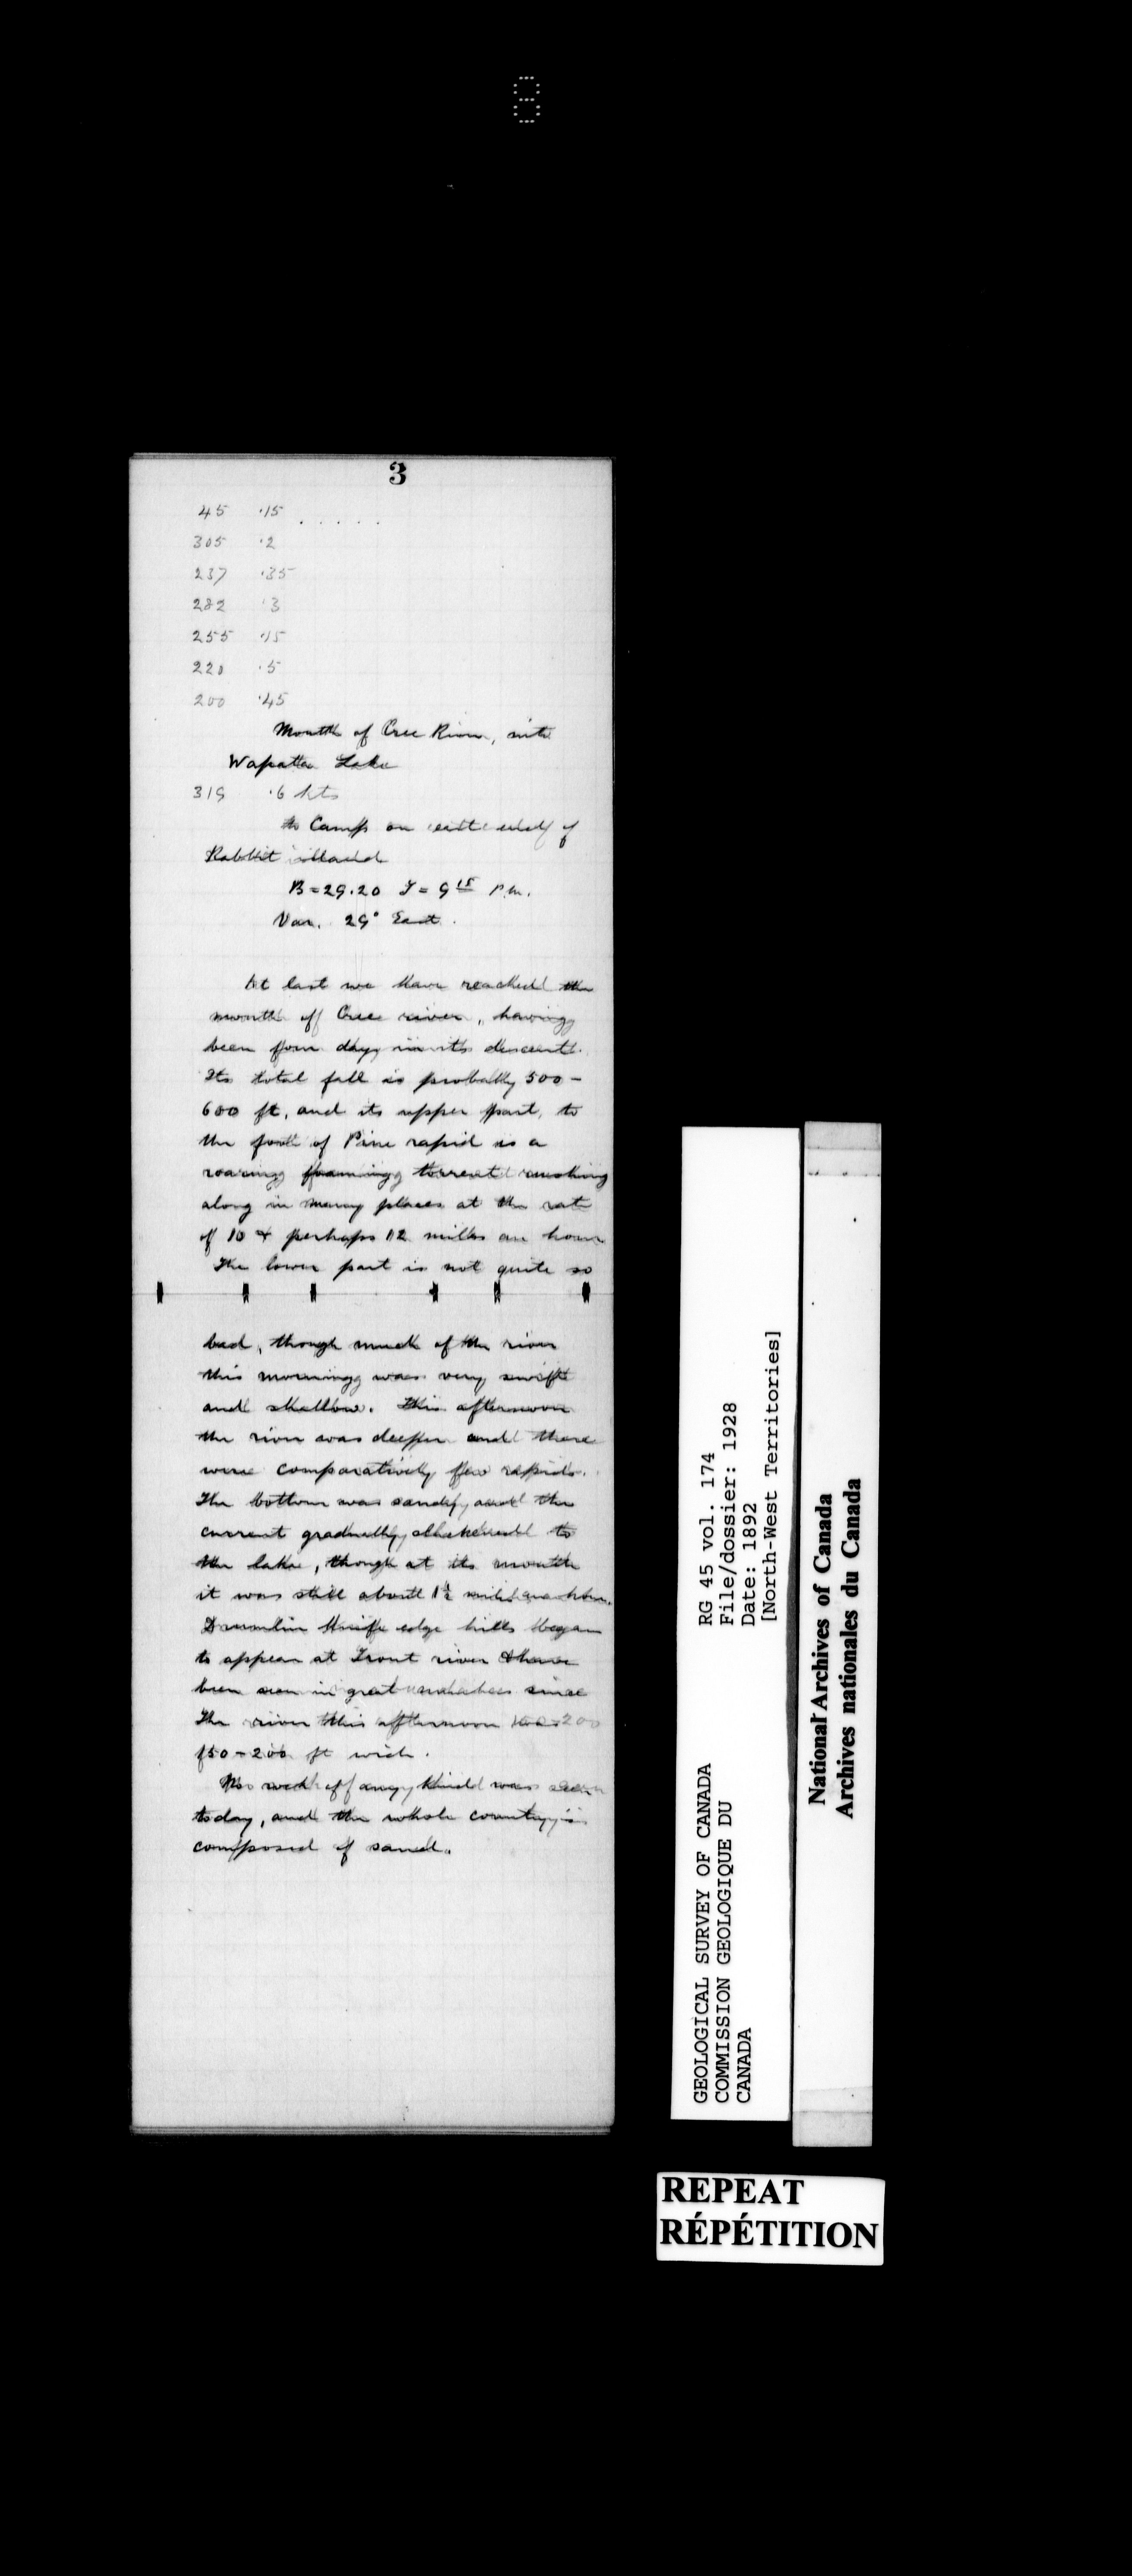 8
3
45 .15 . . . . .
305 .2
237 .35
282 .3
255 .15
220 .5
200 .45
Mouth of Cree River, into
Wapata Lake
319 .6 kts
to Camp on end of
Rabbit island
B = 29.20 T = 9 15 P.M.
Var. 29° East.
At last we have reached the
mouth of Cree river, having
been four days in its descent.
Its total fall is probably 500 -
600 ft, and its upper part, to
the foot of Pine rapid is a
roaring foaming torrent rushing
along in many places at the rate
of 10 & perhaps 12 miles an hour
The lower part is not quite so
bad, though much of the river
this morning was very swift
and shallow. This afternoon
the river was deeper and there
were comparatively few rapids.
The bottom was sandy, and the
current gradually slackened to
the lake, though at its mouth
it was still about 1½ miles an hour.
Drumlin knife edge hills began
to appear at Trout river & have
been seen in great numbers since
The river this afternoon was 200
150 - 200 ft wide.
No rock of any kind was seen
today, and the whole country is
composed of sand.
GEOLOGICAL SURVEY OF CANADA
COMMISSION GEOLOGIQUE DU
CANADA
RG 45 vol. 174
File/dossier: 1928
Date: 1892
[North-West Territories]
National Archives of Canada
Archives nationales du Canada
REPEAT
RÉPÉTITION